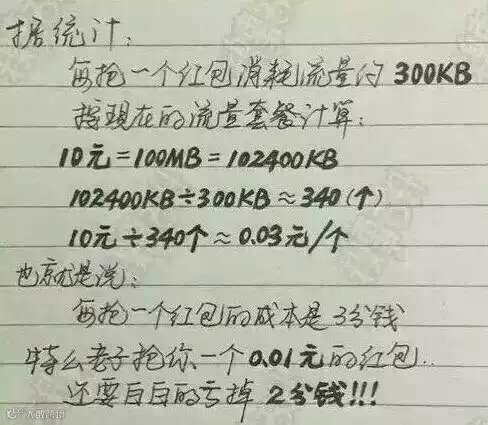 据统计：
每抢一个红包消耗流量约300KB
按现在的流量套餐计算：
10元=100MB=102400KB
102400KB÷300KB≈340(个)
10元÷340个≈0.03元/个
也就是说：
每抢一个红包的成本是3分钱
特么老子抢你一个0.01元的红包..
还要白白的亏掉2分钱!!!